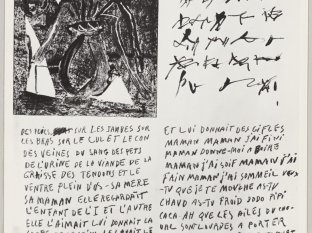 DES POILS SUR LES JAMBES SUR
LES BRAS SUR LE CUL ET LE CON
DES VEINES DU SANG DES PETS
DE L'URINE DE LA VIANDE DE LA
GRAISSE DES TENDONS ET LE
VENTRE PLEIN D'OS - SA MERE
SA MAMAN ELLE REGARDAIT
L'ENFANT DE L'I ET L'AUTRE
ELLE L'AIMAIT LUI DONNAIT LA
ET LUI DONNAIT DES GIFLES
MAMAN MAMAN J'AI FINI
MAMAN DONNE-MOI A BOIRE
MAMAN J'AI SOIF MAMAN J'AI
FAIM MAMAN J'AI SOMMEIL VEUX
TU QUE JE TE MOUCHE AS-TU
CHAUD AS-TU FROID DODO PIPI
CACA AH QUE LES AILES DU CHE-
VAL SONT LOURDES A PORTER